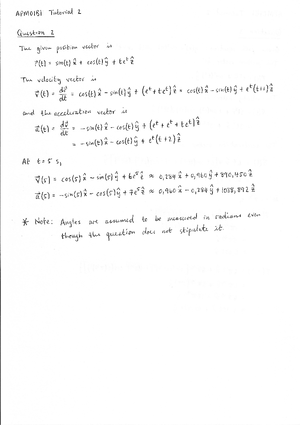 APM01B1 Tutorial 2
Question 2
The given position vector is
r⃗(t) = sin(t) x̂ + cos(t) ŷ + t eᵗ ẑ
The velocity vector is
v⃗(t) = dr⃗/dt = cos(t) x̂ − sin(t) ŷ + (eᵗ + t eᵗ) ẑ = cos(t) x̂ − sin(t) ŷ + eᵗ(t+1) ẑ
and the acceleration vector is
a⃗(t) = dv⃗/dt = −sin(t) x̂ − cos(t) ŷ + (eᵗ + eᵗ + t eᵗ) ẑ
= −sin(t) x̂ − cos(t) ŷ + eᵗ(t+2) ẑ
At t = 5 s,
v⃗(5) = cos(5) x̂ − sin(5) ŷ + 6e⁵ ẑ ≈ 0,284 x̂ + 0,960 ŷ + 890,450 ẑ
a⃗(5) = −sin(5) x̂ − cos(5) ŷ + 7e⁵ ẑ ≈ 0,960 x̂ − 0,284 ŷ + 1038,892 ẑ
* Note: Angles are assumed to be measured in radians even
though the question does not stipulate it.